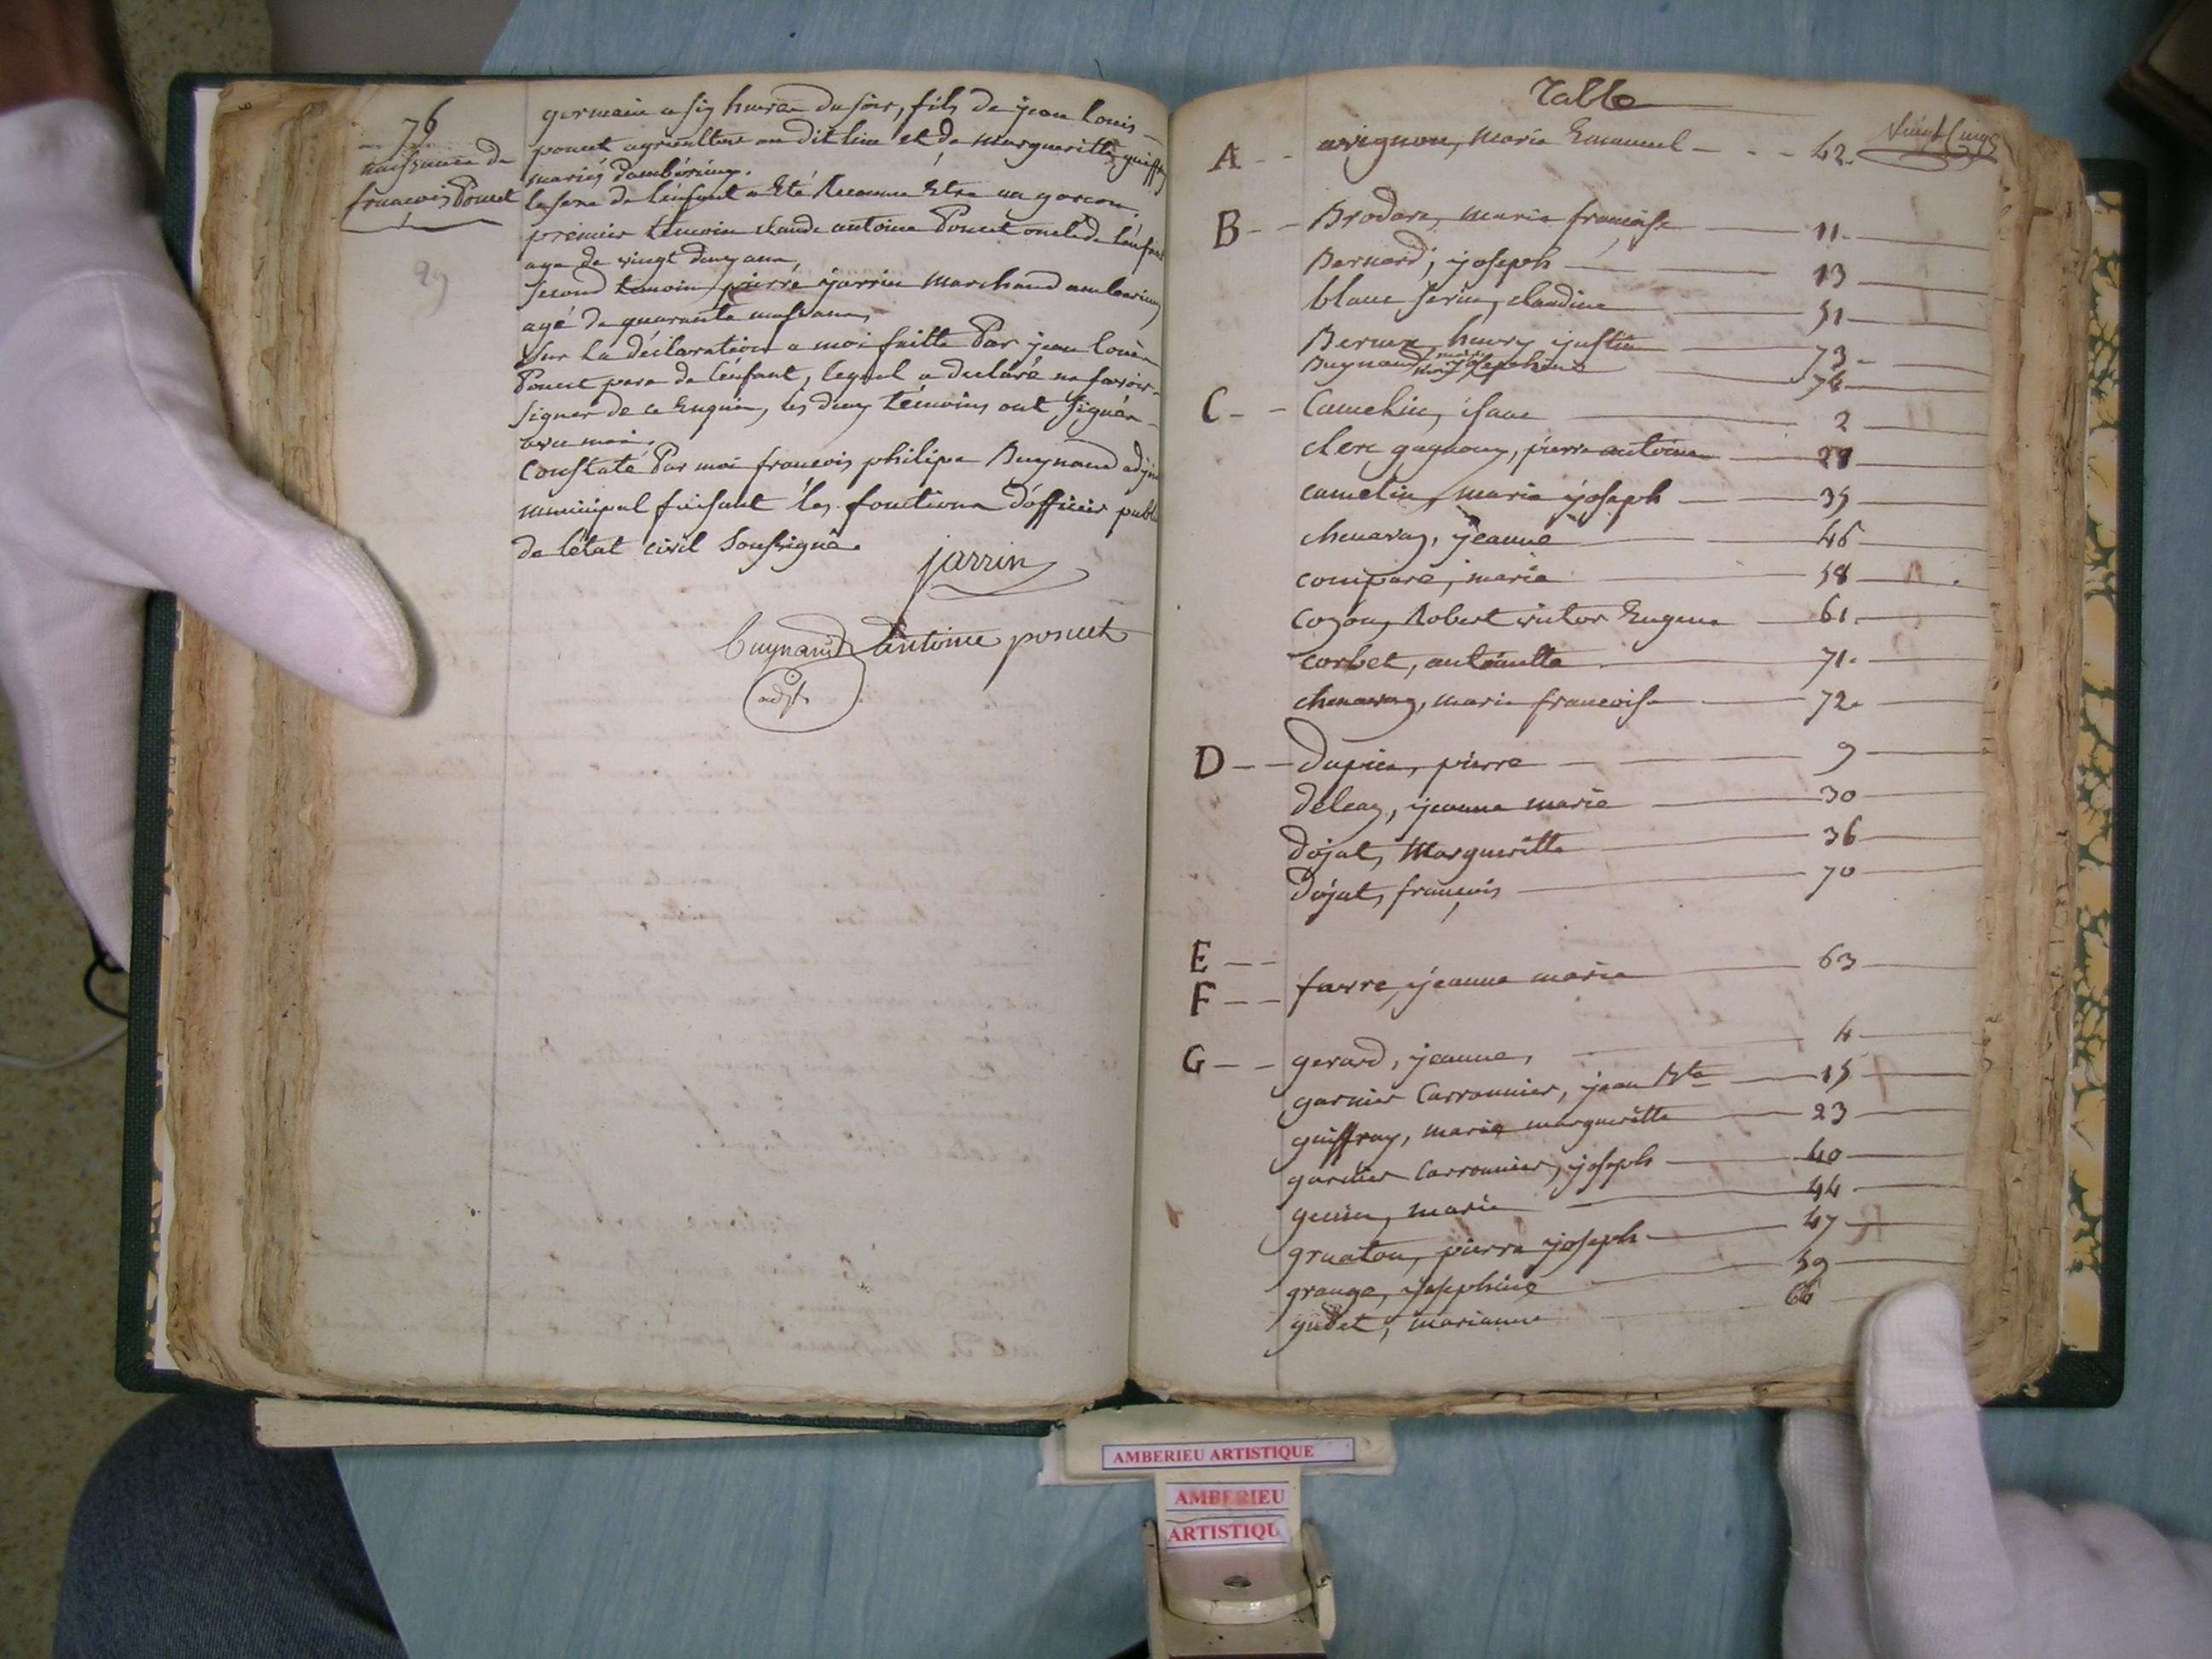 76
naissance de
francois Poncet
29
germain a six heures du soir, fils de jean louis
poncet agriculteur au dit lieu et de margueritte guiffray
mariés d'ambérieux.
le sexe de l'enfant a Eté Reconnu Etre un garcon.
premier témoin claude antoine Poncet oncle de l'enfant
age de vingt deux ans,
second temoin pierre jarrin marchand amberieux
agé de quarante ans,
Sur la déclaration a moi faitte Par jean louis
Poncet pere de l'enfant, lequel a declaré ne savoir
signer de ce Enquis, les deux témoins ont signés
avec moi.
Constaté Par moi francois philipe Buynand adjoint
municipal faisant les fonctions d'officier public
de l'état civil Soussigné.
jarrin
Buynand antoine poncet
adjt
Table
vingt cinq
A -- avignon, marie Emanuel --- 42.
B -- Brodare, marie francoise — 11.
Bernard, joseph — 13
blanc ferin, claudine — 51
henry justin — 73
Buynand marie josephine — 74
C -- Camelin, isaac — 2
clerc gagnoux, pierre antoine — 28
camelin, marie joseph — 35
chenavaz, jeanne — 46
comparé, marie — 58
cozon, Robert victor Eugene — 61.
corbet, antoinette — 71.
chenavaz, marie francoise — 72.
D -- Dupin, pierre — 9
jeanne marie — 30
dojat, Margueritte — 36
dojat, francois — 70
E --
F -- favre, jeanne marie — 63
G -- gerard, jeanne, — 4
garnier Carronnier, jean Bte — 15
guiffray, marie margueritte — 23
garnier Carronnier, joseph — 40
genin, marie — 44
gruaton, pierre joseph — 47
grange, josephine — 59
gudet, marianne — 66
AMBERIEU ARTISTIQUE
AMBERIEU
ARTISTIQU